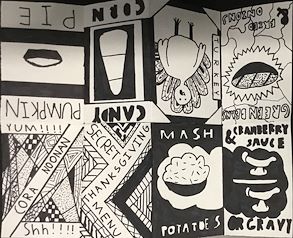 PUMPKIN
PIE
CANDY
CORN
TURKEY
GREEN BEANS
&
FRIED
ONIONS
YUM!!!!
CORA NOONAN
SECRET
THANKSGIVING
MENU
Shh!!!!
MASH
POTATOES
CRANBERRY
& SAUCE
OR GRAVY